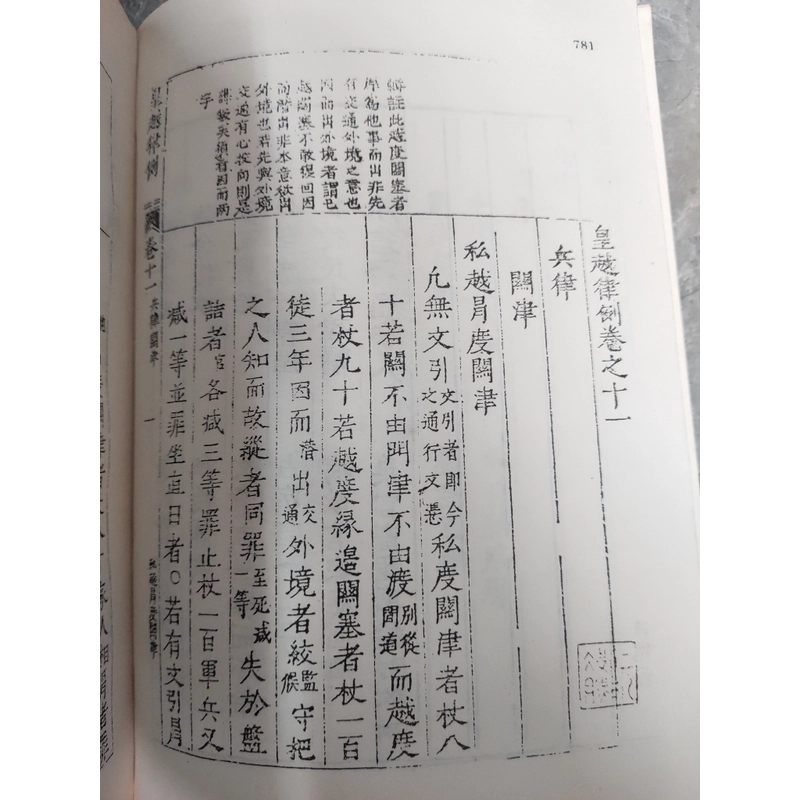 781
辯註此越度關塞者
爲他事而出非先
有交通外境之意也
因而出外境者謂已
越關塞不敢復回因
而潛出非本意欲出
外境也若先與外境
交通有心投向則是
謀叛矣須看因而兩
字
皇越律例卷之十一
兵律
關津
私越冐度關津
凡無文引文引者即今之通行文憑私度關津者杖八
十若關不由門津不由渡別從間道而越度
者杖九十若越度緣邉關塞者杖一百
徒三年因而潛出交通外境者絞監候守把
之人知而故縱者同罪至死減一等失於盤
詰者官各减三等罪止杖一百軍兵又
减一等並罪坐直日者○若有文引冐
皇越律例
卷十一 兵律關津
一
私越冐度關津